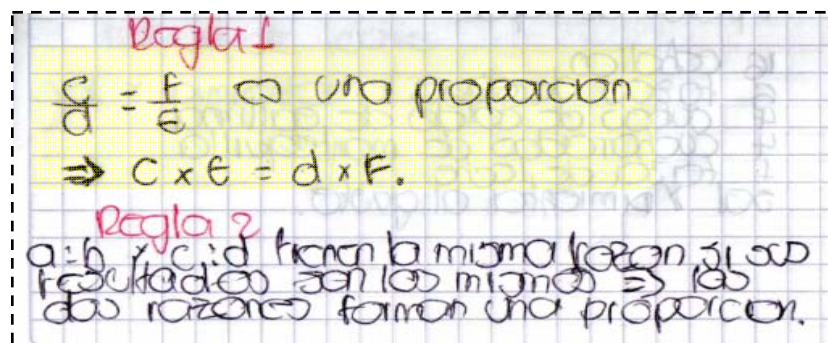 Regla 1
c/d = F/E es una proporcion
⇒ c x E = d x F.
Regla 2
a:b y c:d tienen la misma razon si sus
resultados son los mismos ⇒ las
dos razones forman una proporcion.